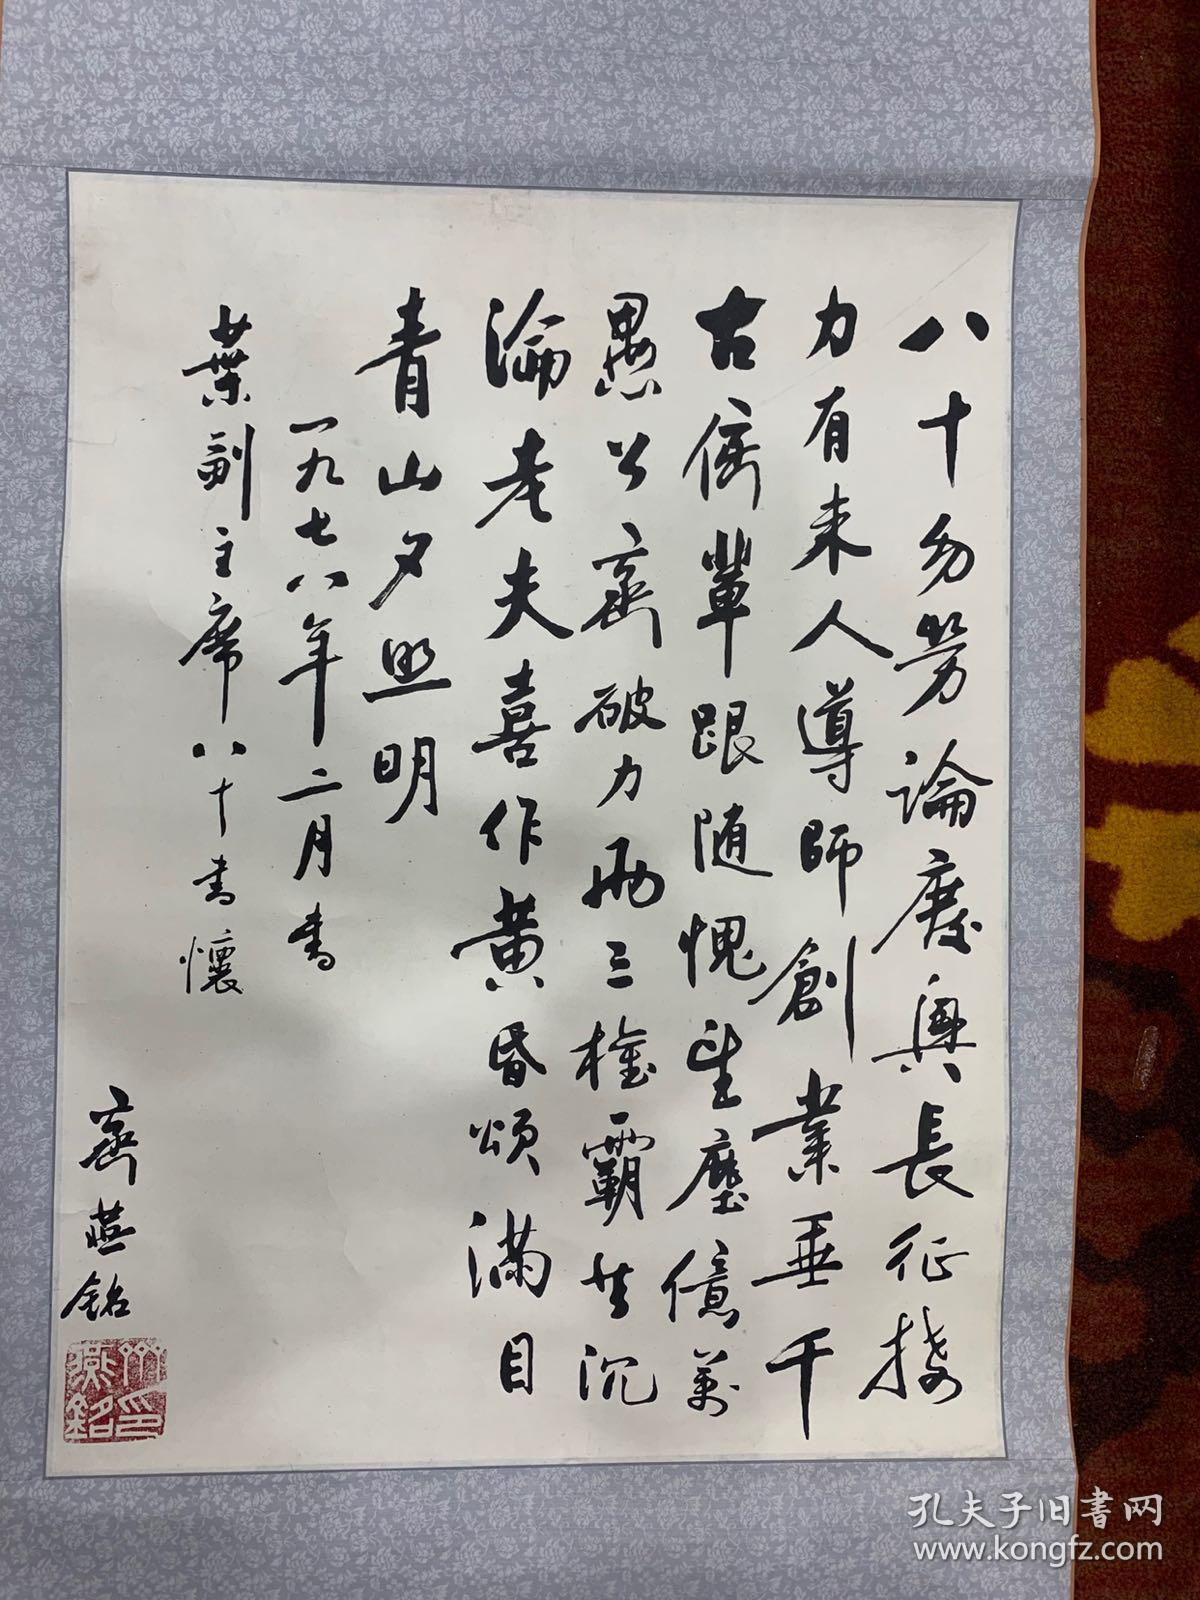 八十勿勞論廢興長征接
力有来人導師創業垂千
古儕輩跟随愧望塵億萬
愚公齊破力兩三權霸共沉
淪老夫喜作黄昏頌滿目
青山夕照明
一九七八年二月書
葉副主席八十書懷
齊燕銘
齊燕銘印
孔夫子旧书网
www.kongfz.com